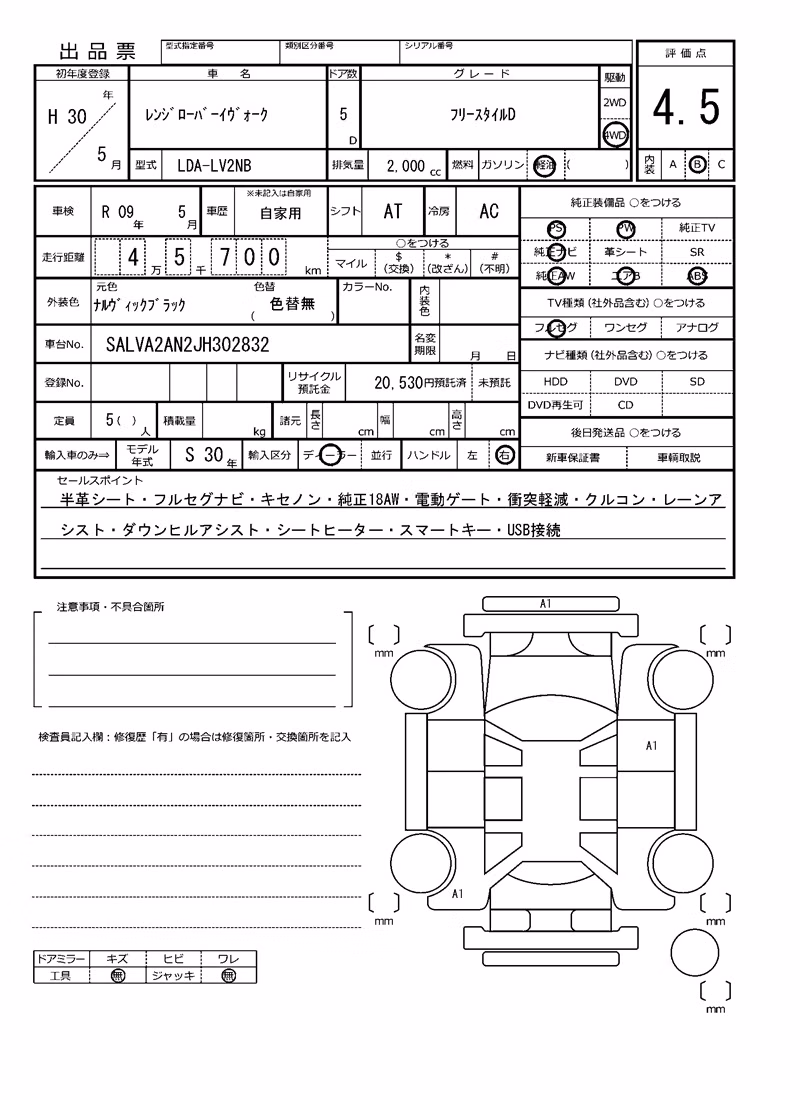 出品票
型式指定番号 類別区分番号 シリアル番号
初年度登録 車 名 ドア数 グレード 駆動 評価点
H 30 年 5 月 レンジローバーイヴォーク 5 D フリースタイルD 2WD 4WD 4.5
型式 LDA-LV2NB 排気量 2,000 cc 燃料 ガソリン 軽油 ( ) 内装 A B C
車検 R 09 年 5 月 車歴 ※未記入は自家用 自家用 シフト AT 冷房 AC
走行距離 4 万 5 千 7 0 0 km ○をつける
マイル $ (交換) * (改ざん) # (不明)
外装色 元色 ナルヴィックブラック 色替 色替無 ( ) カラーNo. 内装色
車台No. SALVA2AN2JH302832 名変期限 月 日
登録No. リサイクル預託金 20,530円預託済 未預託
定員 5 ( ) 人 積載量 kg 諸元 長さ cm 幅 cm 高さ cm
輸入車のみ⇒ モデル年式 S 30 年 輸入区分 ディーラー 並行 ハンドル 左 右
純正装備品 ○をつける
PS PW 純正TV
純正ナビ 革シート SR
純正AW エアB ABS
TV種類 (社外品含む) ○をつける
フルセグ ワンセグ アナログ
ナビ種類 (社外品含む) ○をつける
HDD DVD SD
DVD再生可 CD
後日発送品 ○をつける
新車保証書 車輌取説
セールスポイント
半革シート・フルセグナビ・キセノン・純正18AW・電動ゲート・衝突軽減・クルコン・レーンア
シスト・ダウンヒルアシスト・シートヒーター・スマートキー・USB接続
注意事項・不具合箇所
検査員記入欄:修復歴「有」の場合は修復箇所・交換箇所を記入
ドアミラー キズ ヒビ ワレ
工具 無 ジャッキ 無
A1
mm mm
A1
A1
mm mm
mm